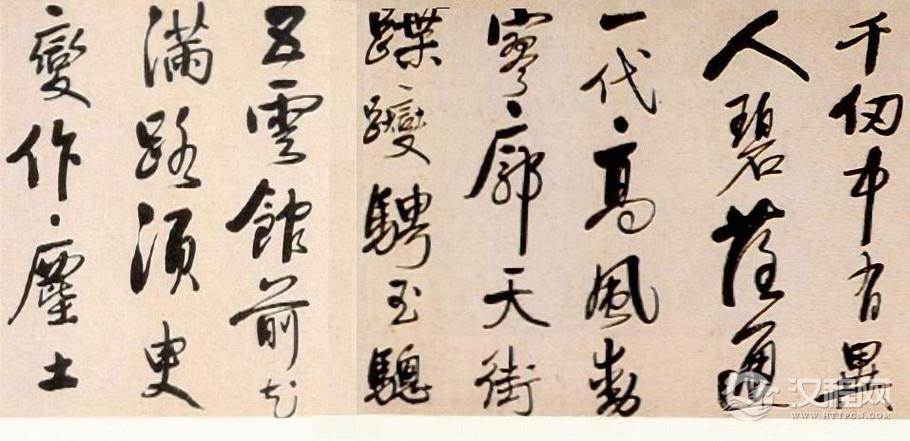 千仞中有異
人碧通
一代高風動
寥廓天街
蹀躞騁玉驄
五雲館前花
滿路須臾
變作塵土
汉程网
WWW.HTTPCN.COM